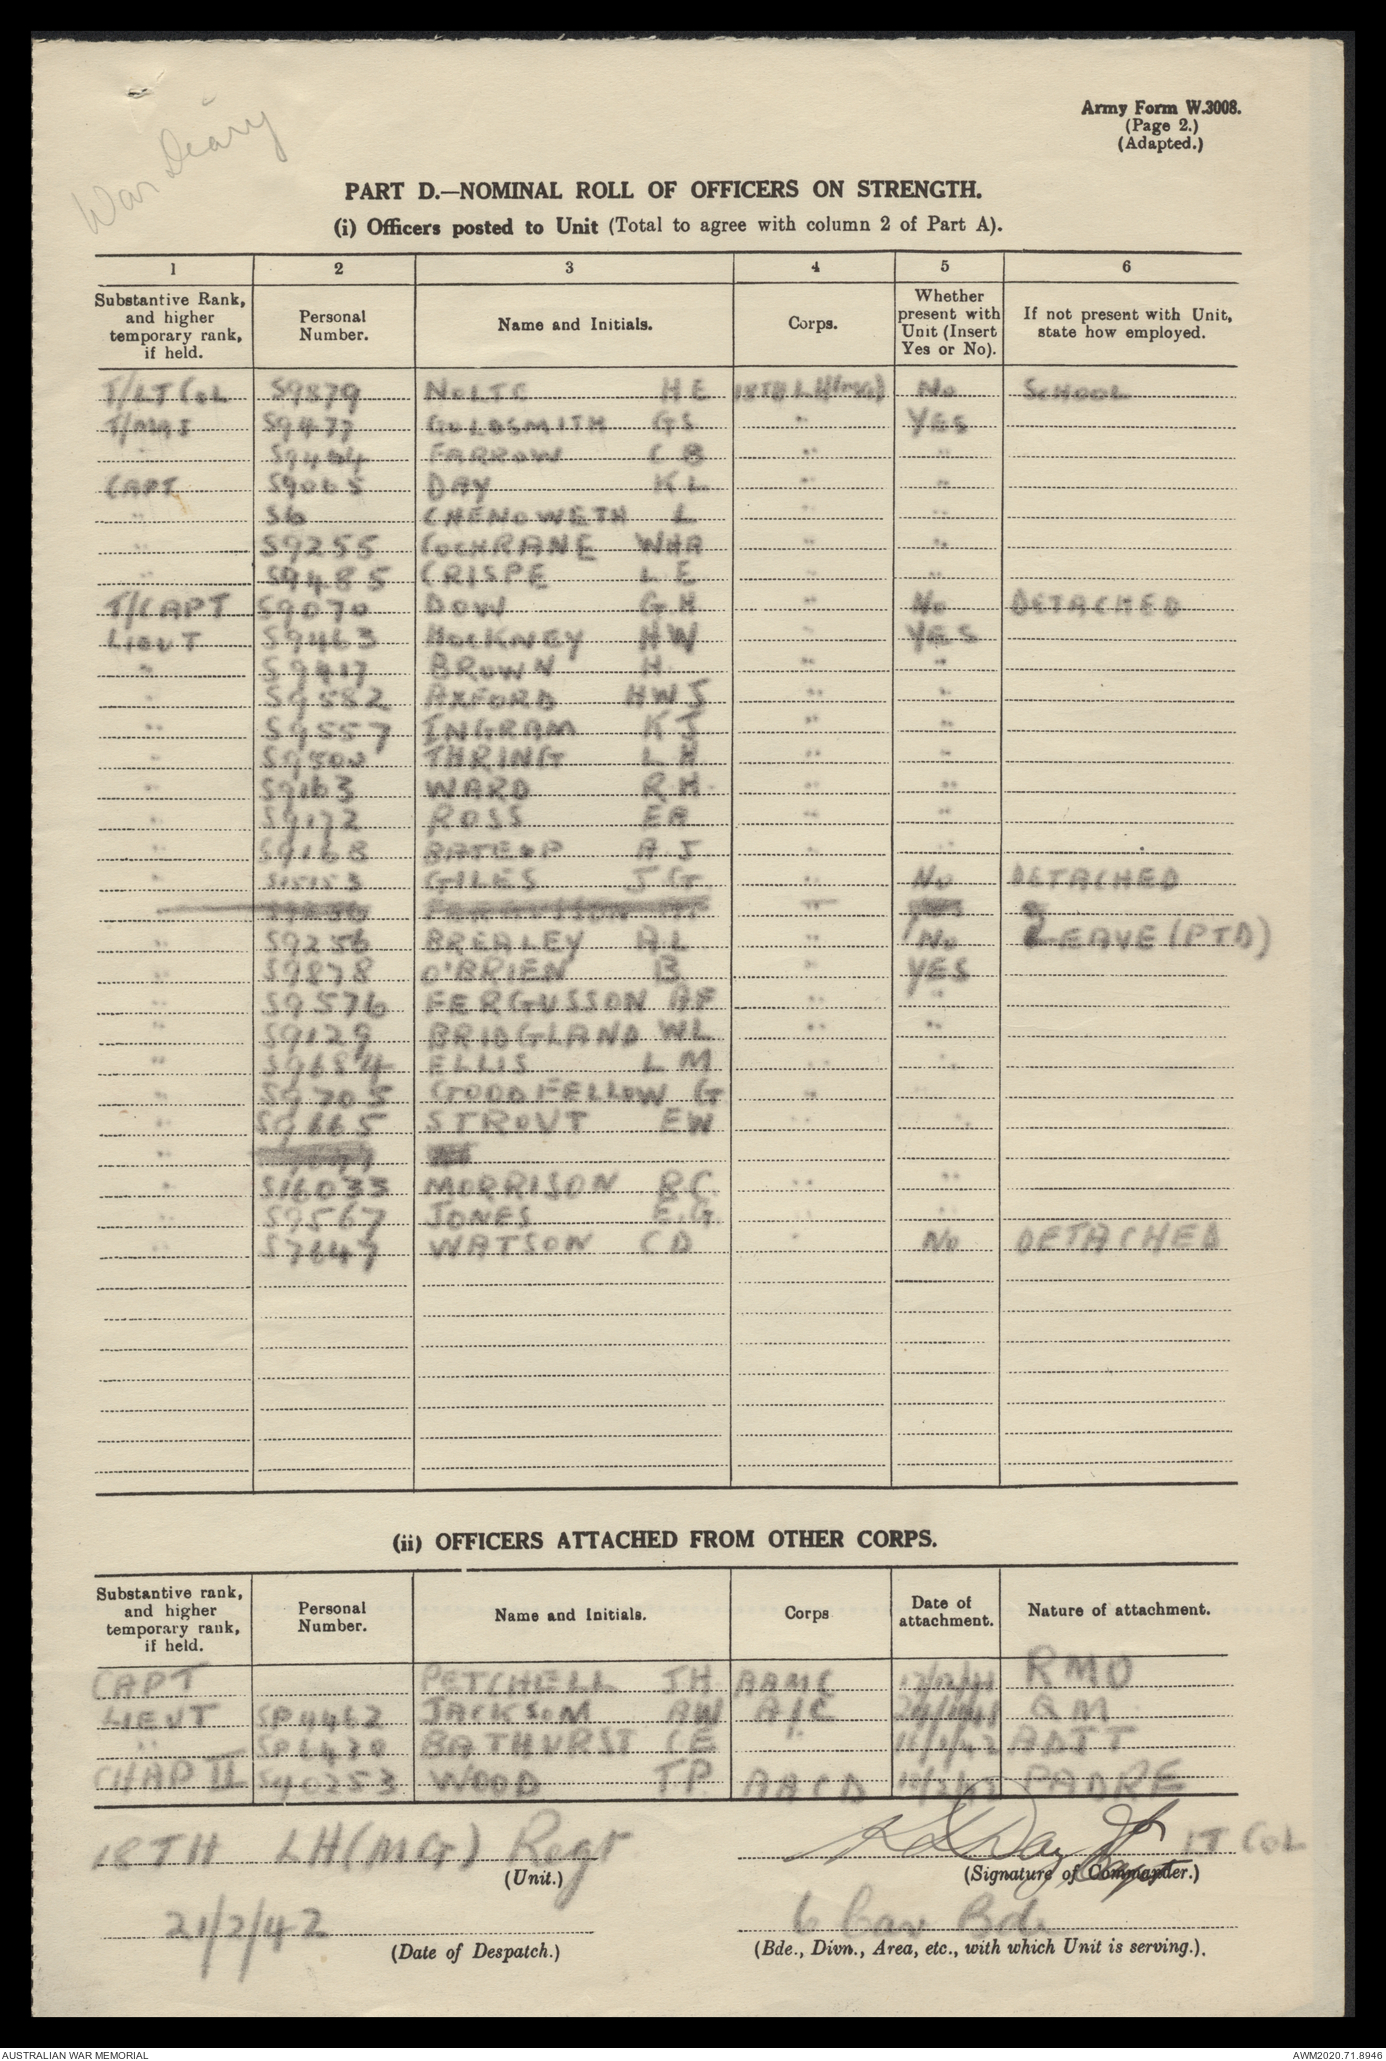 War Diary
Army Form W.3008.
(Page 2.)
(Adapted.)
PART D.—NOMINAL ROLL OF OFFICERS ON STRENGTH.
(i) Officers posted to Unit (Total to agree with column 2 of Part A).
1 2 3 4 5 6
Substantive Rank, and higher temporary rank, if held. Personal Number. Name and Initials. Corps. Whether present with Unit (Insert Yes or No). If not present with Unit, state how employed.
T/LT COL S9879 NOLTE H E 18TH L H(MG) No SCHOOL
T/MAJ S9477 GOLDSMITH G S " YES
" FARROW C B " "
CAPT S9065 DAY K L " "
" S6 CHENOWETH L " "
" S9255 COCHRANE WHA " "
" S9485 CRISPE L E " "
T/CAPT S9070 DOW G H " No DETACHED
LIEUT S9463 HOCKNEY HW " YES
" S9417 BROWN H " "
" S9582 AXFORD HWJ " "
" S9557 INGRAM K J " "
" S9500 THRING L H " "
" S9163 WARD R H " "
" S9172 ROSS EA " "
" S9168 BATEUP A J " "
" GILES J G " No DETACHED
FERGUSSON "
" S9256 BREALEY A L " No LEAVE (PTD)
" S9878 O'BRIEN B " YES
" S9576 FERGUSSON AF " "
" S9129 BRIDGLAND WL " "
" S9684 ELLIS L M " "
" S9705 GOODFELLOW G "
" S9665 STROUT EW " "
"
" S16033 MORRISON R C " "
" S9567 JONES E.G. " "
" S7647 WATSON C D " No DETACHED
(ii) OFFICERS ATTACHED FROM OTHER CORPS.
Substantive rank, and higher temporary rank, if held. Personal Number. Name and Initials. Corps Date of attachment. Nature of attachment.
CAPT PETCHELL JH AAMC 17/12/41 RMO
LIEUT SP4462 JACKSON AW AIC QM
" BATHURST CE " ADJT
CHAP IV S40253 WOOD T.P. AACD PADRE
18TH LH(MG) Regt
(Unit.)
K L Day Capt
for LT COL
(Signature of Commander.)
21/2/42
(Date of Despatch.)
6 Cav Bde
(Bde., Divn., Area, etc., with which Unit is serving.).
AUSTRALIAN WAR MEMORIAL
AWM2020.71.8946